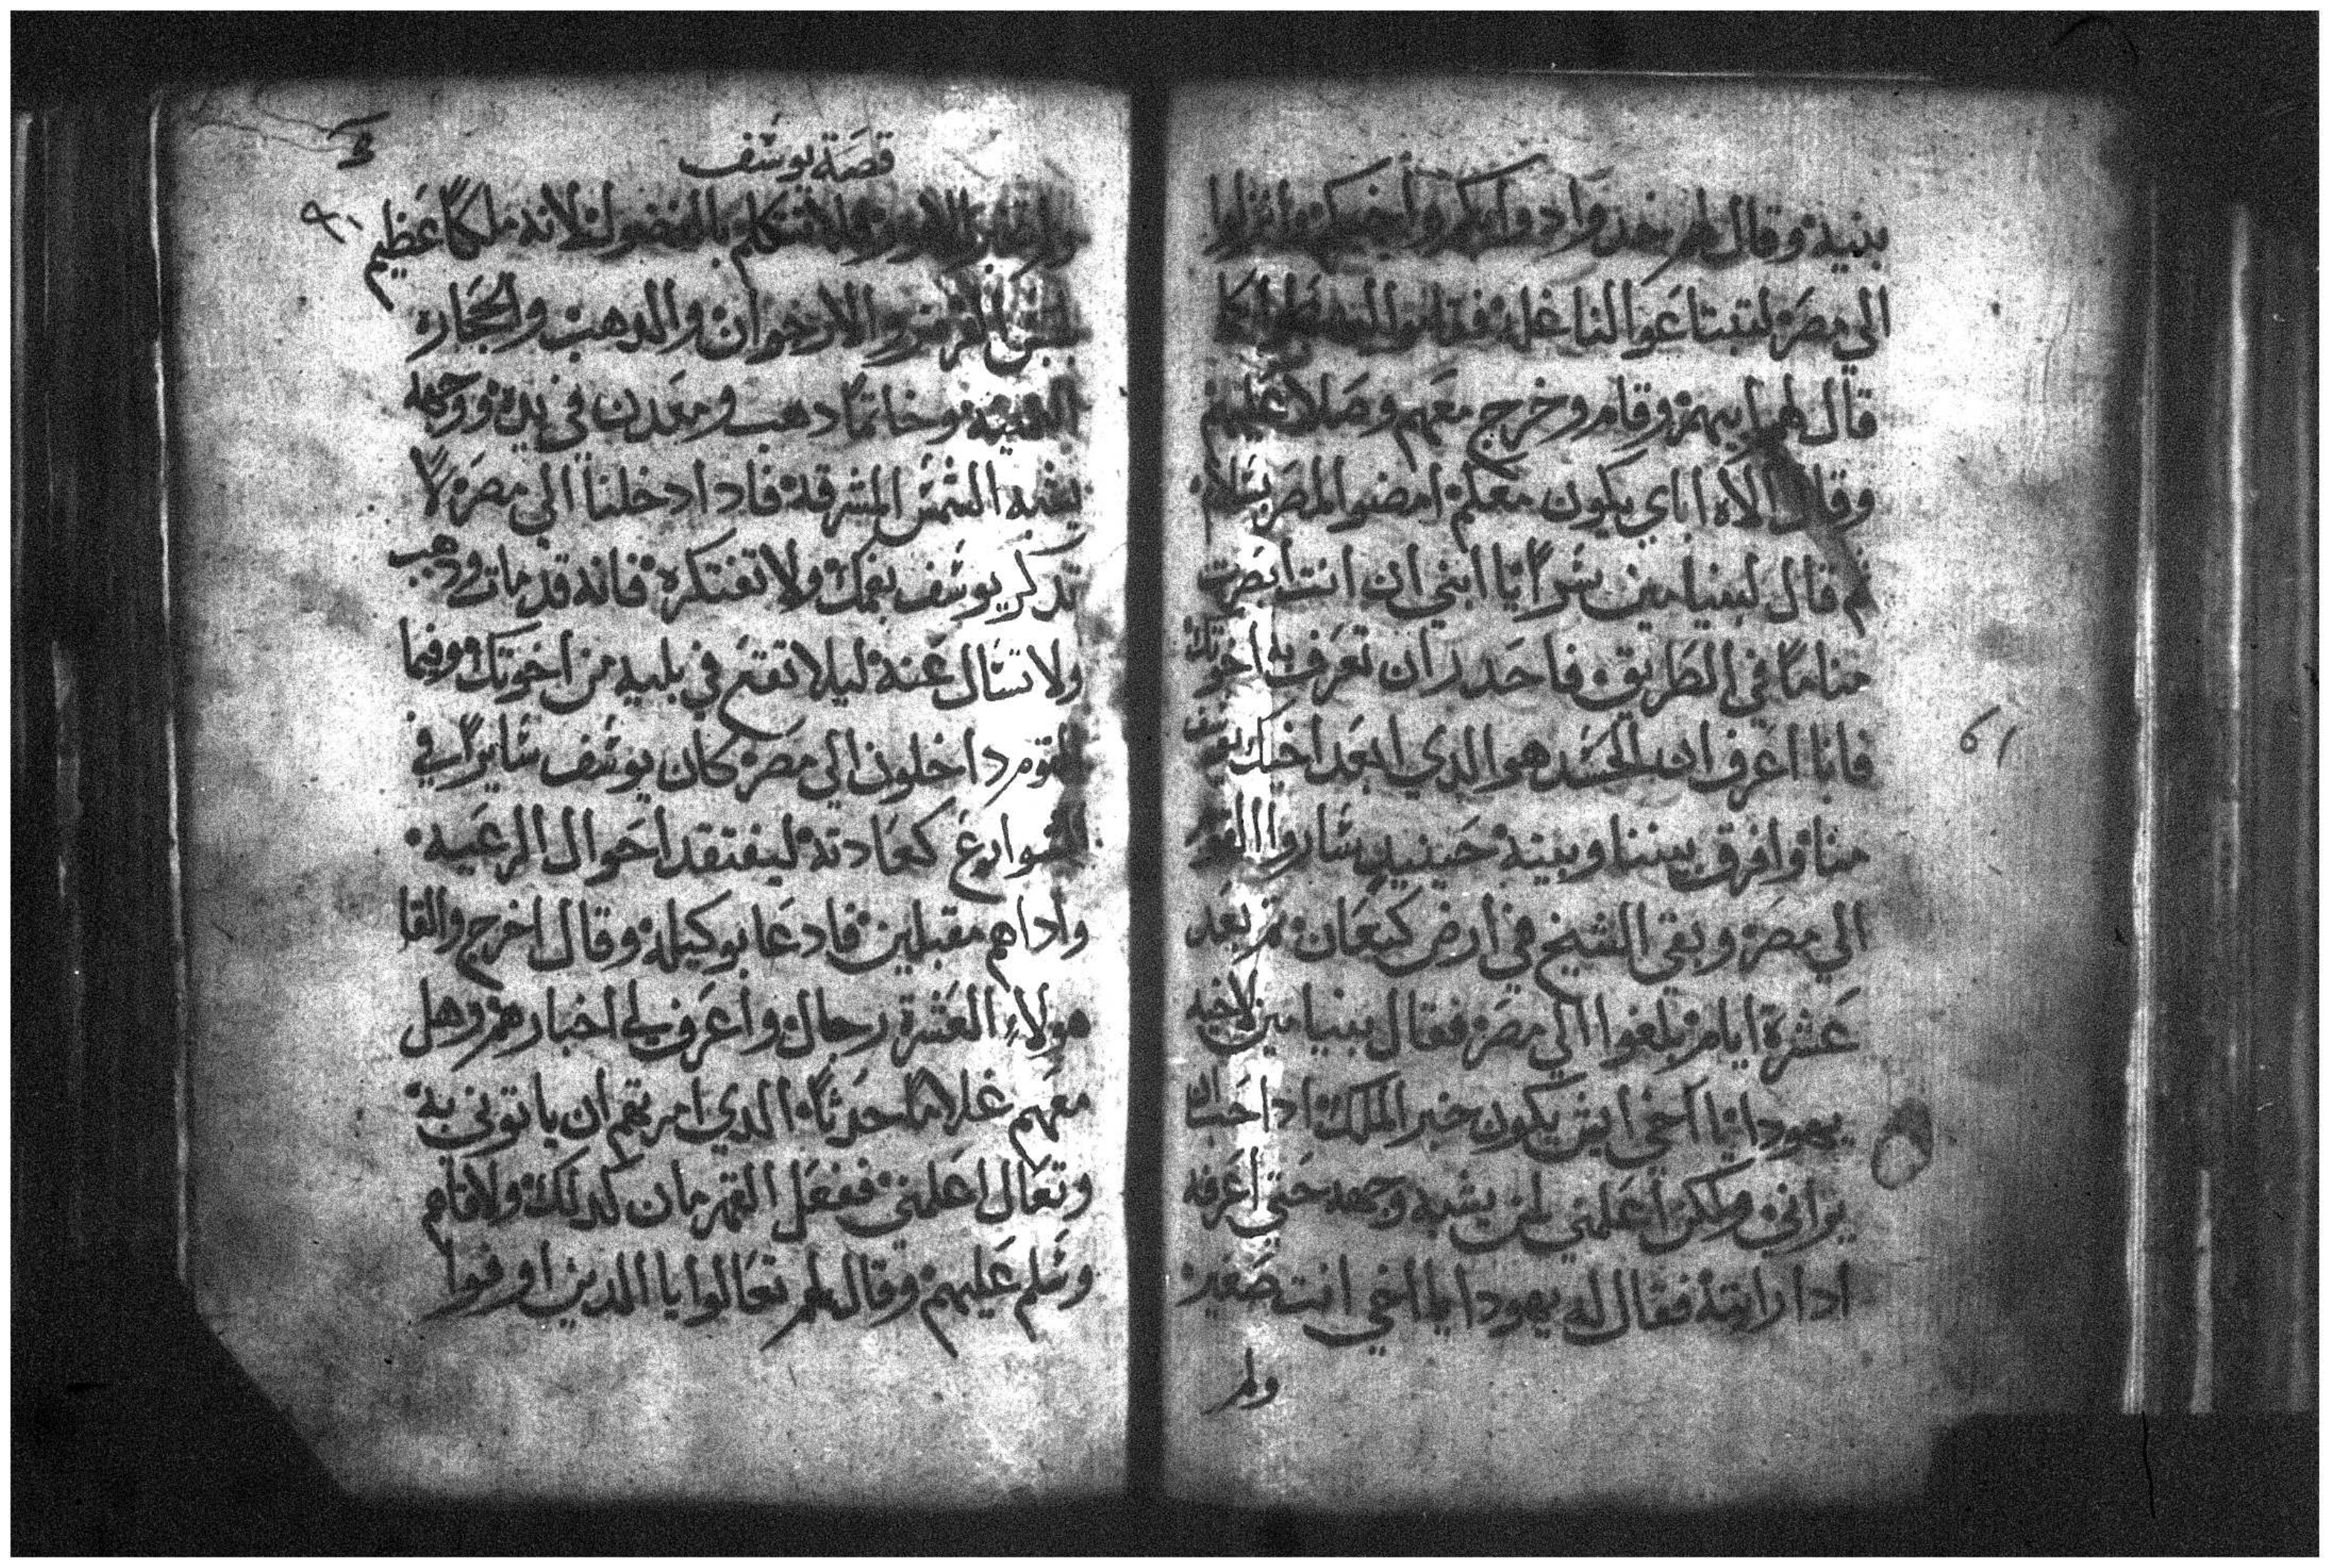 بنيه وقال لهم خدوا دوابكم وأخيكم وانزلوا
الي مصر لتبتاعوا لنا غله فقاموا
قال لهم ابيهم وقام وخرج معهم وصلا عليهم
وقال الاه اباي يكون معكم امضوا لمصر بسلام
ثم قال لبنيامين سراً يا ابني ان انت ابصرت
مناماً في الطريق فاحدر ان تعرف به اخوتك
فانا اعرف ان الحسد هو الدي ابعد اخيك يوسف
منا وافرق بيننا وبينه حينيدٍ ساروا
الي مصر وبقي الشيخ في ارض كنعان ثم بعد
عشرة ايام بلغوا الي مصر فقال بنيامين لاخيه
يهودا يا اخي ايش يكون خبر الملك ادا
يراني ولكن أعلمني لمن يشبه وجهه حتي اعرفه
ادا رايته فقال له يهودا يا اخي انت صغير
ولم
قصة يوسف
ولا تتكلم بالفضول لانه ملكاً عظيم
القرمز والارجوان والدهب والحجاره
وخاتماً دهب ومعدن في يده ووجهه
يشبه الشمس المشرقه فادا دخلنا الي مصر لا
تدكر يوسف بفمك ولا تفتكره فانه قد مات ودهب
ولا تسال عنه ليلا تقع في بليه من اخوتك وفيما
القوم داخلون الي مصر كان يوسف سايراً في
الشوارع كعادته ليفتقد احوال الرعيه
واداهم مقبلين فادعا بوكيله وقال اخرج والقا
هولاءِ العشرة رجال واعرف لي اخبارهم وهل
معهم غلاماً حدثاً الدي امرتهم ان ياتوني به
وتعال اعلمني ففعل القهرمان كدلك ولاقاهم
وسلم عليهم وقال لهم تعالوا يا الدين اوفوا